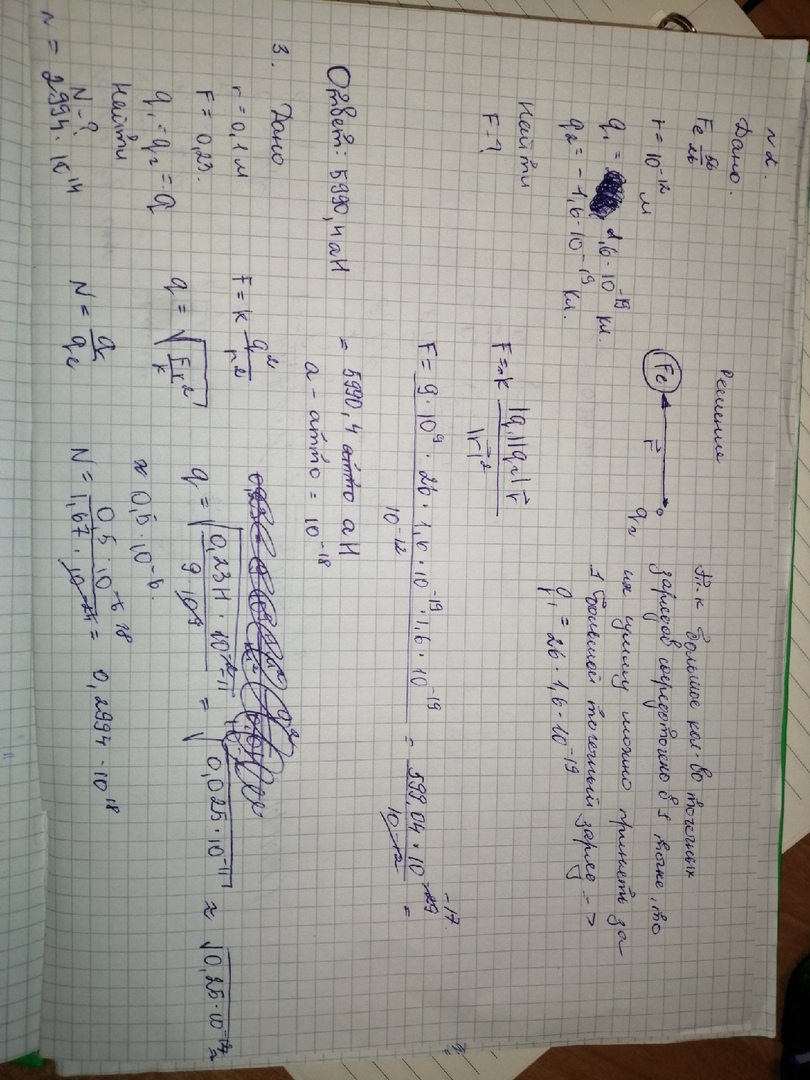 № 2.
Дано.
Fe 56 26
r = 10⁻¹² м
q₁ = 1,6 · 10⁻¹⁹ кл.
q₂ = -1,6 · 10⁻¹⁹ кл.
Найти
F - ?
Решение
Fe
r⃗
q₂
Т.к большое кол-во точечных
зарядов сосредоточено в 1 точке, то
их сумму можно принять за
1 большой точечный заряд ->
q₁ = 26 · 1,6 · 10⁻¹⁹
F = k |q₁||q₂| r⃗ / |r⃗|²
F = 9 · 10⁹ · 26 · 1,6 · 10⁻¹⁹ · 1,6 · 10⁻¹⁹ / 10⁻¹² = 599,04 · 10⁻²⁹ ⁻¹⁷ / 10⁻¹² =
= 5990,4 атто аН
а - атто = 10⁻¹⁸
Ответ: 5990,4 аН
3. Дано
r = 0,1 м
F = 0,23.
q₁ = q₂ = q
Найти
N - ?
F = k q² / r²
q = √(Fr² / k)
q = √(0,23 Н · 10⁻² ⁻¹¹ / 9 · 10⁹) = √(0,025 · 10⁻¹¹) ≈ √(0,25 · 10⁻¹²) =
≈ 0,5 · 10⁻⁶.
N = q / qe
N = 0,5 · 10⁻⁶ ¹⁸ / 1,67 · 10⁻²⁴ = 0,2994 · 10¹⁸
N = 2994 · 10¹⁴